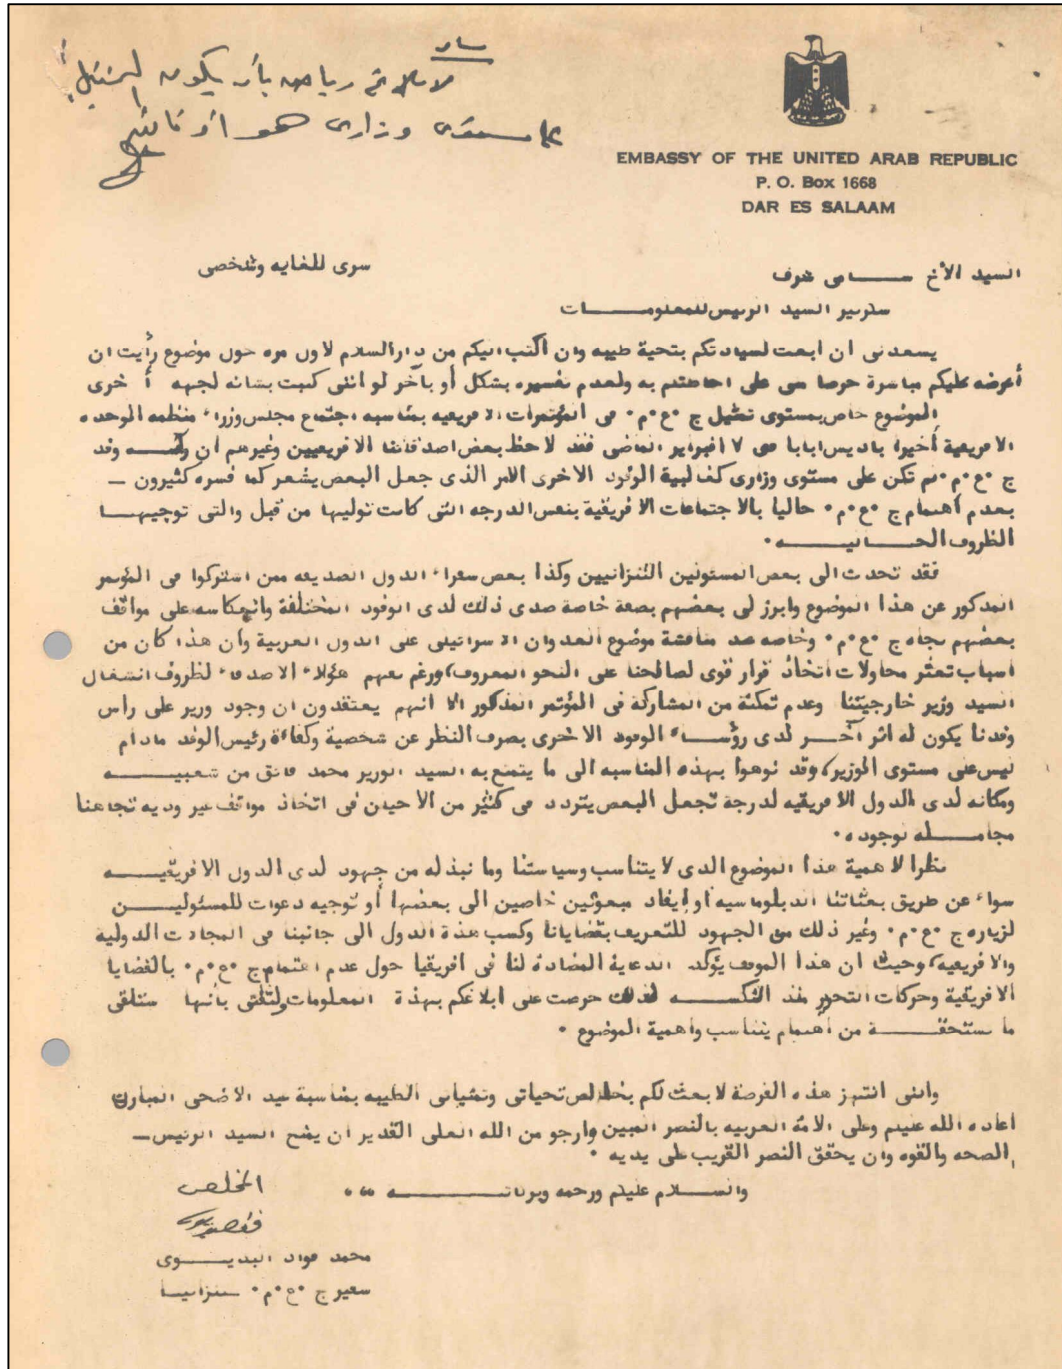 سامى
لابلاغ رياض بأن يكون التمثيل
على مستوى وزارى هو أو فائق
EMBASSY OF THE UNITED ARAB REPUBLIC
P. O. Box 1668
DAR ES SALAAM
سرى للغايه وشخصى
السيد الأخ ســـامى شرف
سكرتير السيد الرئيس للمعلومـــات
يسعدنى ان ابعث لسيادتكم بتحية طيبه وان اكتب اليكم من دار السلام لاول مره حول موضوع رأيت ان
أعرضه عليكم مباشرة حرصا منى على احاطتكم به ولعدم تفسيره بشكل أو بآخر لو اننى كتبت بشانه لجهه أخرى
الموضوع خاص بمستوى تمثيل ج ٠ع ٠م ٠ فى المؤتمرات الافريقيه بمناسبه اجتماع مجلس وزراء منظمه الوحده
الافريقية أخيرا باديس ابابا فى ٧ فبراير الماضى فقد لاحظ بعض اصدقائنا الافريقيين وغيرهم ان وفد
ج ٠ع ٠م ٠ لم تكن على مستوى وزارى كغالبية الوفود الاخرى الامر الذى جعل البعض يشعر كما فسره كثيرون –
بعدم أهتمام ج ٠ع ٠م ٠ حاليا بالاجتماعات الافريقية بنفس الدرجه التى كانت توليها من قبل والتى توجبهـــا
الظروف الحـــاليـــه ٠
فقد تحدث الى بعض المسئولين التنزانيين وكذا بعض سفراء الدول الصديقه ممن اشتركوا فى المؤتمر
المذكور عن هذا الموضوع وابرز لى بعضهم بصفة خاصة صدى ذلك لدى الوفود المختلفة وانعكاسه على مواقف
بعضهم تجاه ج ٠ع ٠م ٠ وخاصه عند مناقشة موضوع العدوان الاسرائيلى على الدول العربية وأن هذا كان من
اسباب تعثر محاولات اتخاذ قرار قوى لصالحنا على النحو المعروف، ورغم تفهم هؤلاء الاصدقاء لظروف انشغال
السيد وزير خارجيتنا وعدم تمكنة من المشاركة فى المؤتمر المذكور الا انهم يعتقدون ان وجود وزير على رأس
وفدنا يكون له اثر آخـــر لدى رؤســـاء الوفود الاخرى بصرف النظر عن شخصية وكفاءة رئيس الوفد مادام
ليس على مستوى الوزير، وقد نوهوا بهذه المناسبه الى ما يتمتع به السيد الوزير محمد فائق من شعبيـــه
ومكانه لدى الدول الافريقيه لدرجة تجعل البعض يتردد فى كثير من الاحيان فى اتخاذ مواقف غير وديه تجاهنا
مجامـــله لوجوده ٠
نظرا لاهمية هذا الموضوع الذى لا يتناسب وسياستنا وما نبذله من جهود لدى الدول الافريقيـــه
سواء عن طريق بعثاتنا الدبلوماسيه أو إيفاد مبعوثين خاصين الى بعضها أو توجيه دعوات للمسئوليـــن
لزياره ج ٠ع ٠م ٠ وغير ذلك من الجهود للتعريف بقضايانا وكسب هذة الدول الى جانبنا فى المجالات الدولية
والافريقيه، وحيث ان هذا الموقف يؤكد الدعاية المضادة لنا فى افريقيا حول عدم اهتمام ج ٠ع ٠م ٠ بالقضايا
الافريقية وحركات التحرر منذ النكســـه لذلك حرصت على ابلاغكم بهذة المعلومات ولثقتى بأنها ستلقى
ما تستحقـــه من أهتمام يتناسب واهمية الموضوع ٠
واننى انتهز هذه الفرصة لابعث لكم بخالص تحياتى وتمنياتى الطيبه بمناسبة عيد الاضحى المبارك
اعاده الله عليكم وعلى الامة العربيه بالنصر المبين وارجو من الله العلى القدير ان يمنح السيد الرئيس –
الصحه والقوه وان يحقق النصر القريب على يديه ٠
والســـلام عليكم ورحمه وبركاتـــه ٠٠،
المخلص
محمد فواد البديـــوى
سفير ج ٠ع ٠م ٠ بتنزانيـــا